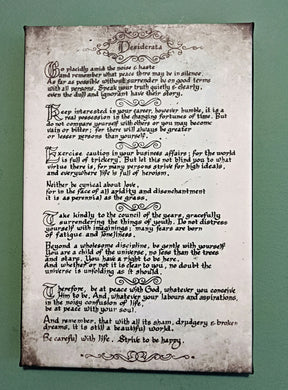 Desiderata
Go placidly amid the noise & haste
and remember what peace there may be in silence.
As far as possible without surrender be on good terms
with all persons. Speak your truth quietly & clearly,
even the dull and ignorant have their story.
Keep interested in your career, however humble, it is a
real possession in the changing fortunes of time. But
do not compare yourself with others or you may become
vain or bitter; for there will always be greater
or lesser persons than yourself.
Exercise caution in your business affairs; for the world
is full of trickery. But let this not blind you to what
virtue there is, for many persons strive for high ideals,
and everywhere life is full of heroism.
Neither be cynical about love,
for in the face of all aridity and disenchantment
it is as perennial as the grass.
Take kindly to the council of the years, gracefully
surrendering the things of youth. Do not distress
yourself with imaginings; many fears are born
of fatigue and loneliness.
Beyond a wholesome discipline, be gentle with yourself
You are a child of the universe, no less than the trees
and stars, You have a right to be here.
And whether or not it is clear to you, no doubt the
universe is unfolding as it should.
Therefore, be at peace with God, whatever you conceive
Him to be. And, whatever your labours and aspirations,
in the noisy confusion of life,
be at peace with your soul.
And remember, that with all its sham, drudgery & broken
dreams, it is still a beautiful world.
Be careful with life. Strive to be happy.